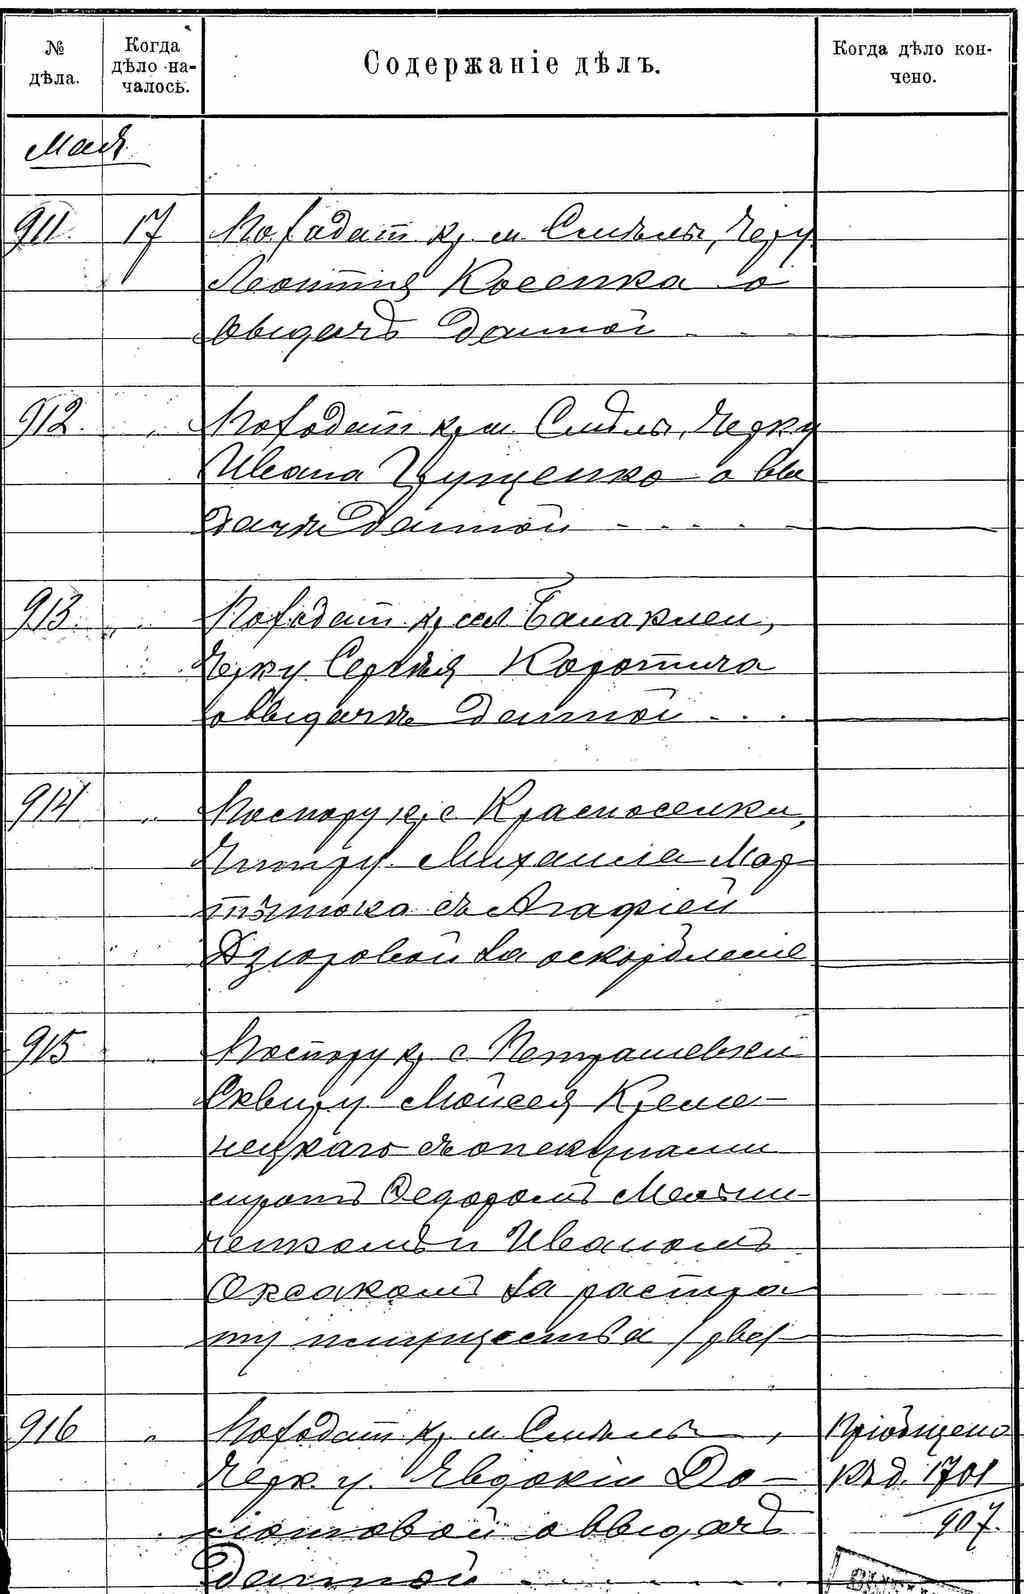 № дѣла.
Когда дѣло началось.
Содержаніе дѣлъ.
Когда дѣло кончено.
Мая
911. 17 По ходат. кр. м. Смѣлы, Чер. у.
Леонтія Косенка о
выдачѣ данной
912. " По ходат. кр. м. Смѣлы, Черк. у
Ивана Грущенко о вы
дачѣ данной
913. " По ходат. кр. сел. Балаклеи,
Черк. у. Сергѣя Коротича
о выдачѣ данной
914 " По спору кр. с. Красноселки,
Чигир. у. Михаила Мар
тынюка съ Агафіей
за оскорбленіе
915 " По спору кр. с. Петрашевки
Сквир. у. Мойсея Креме-
нецкаго съ опекунами
сиротъ Федоромъ Мельни-
ченкомъ и Иваномъ
Оксакомъ за растра
ту имущества
916 " По ходат. кр. м. Смѣлы,
Черк. у. Явдокіи До-
о выдачѣ
данной
Пріобщено
къ д. 1701
907.